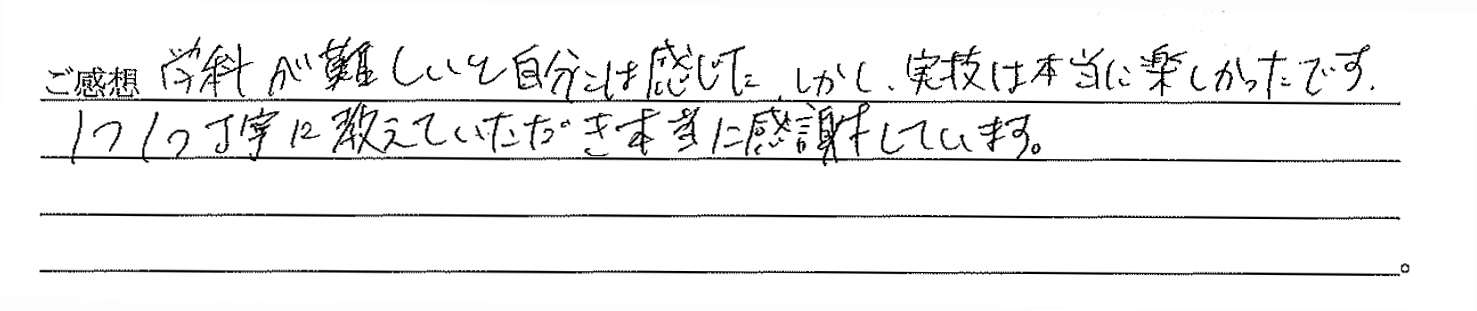 ご感想 学科が難しいと自分には感じた、しかし、実技は本当に楽しかったです.
1つ1つ丁寧に教えていただき本当に感謝しています。
。